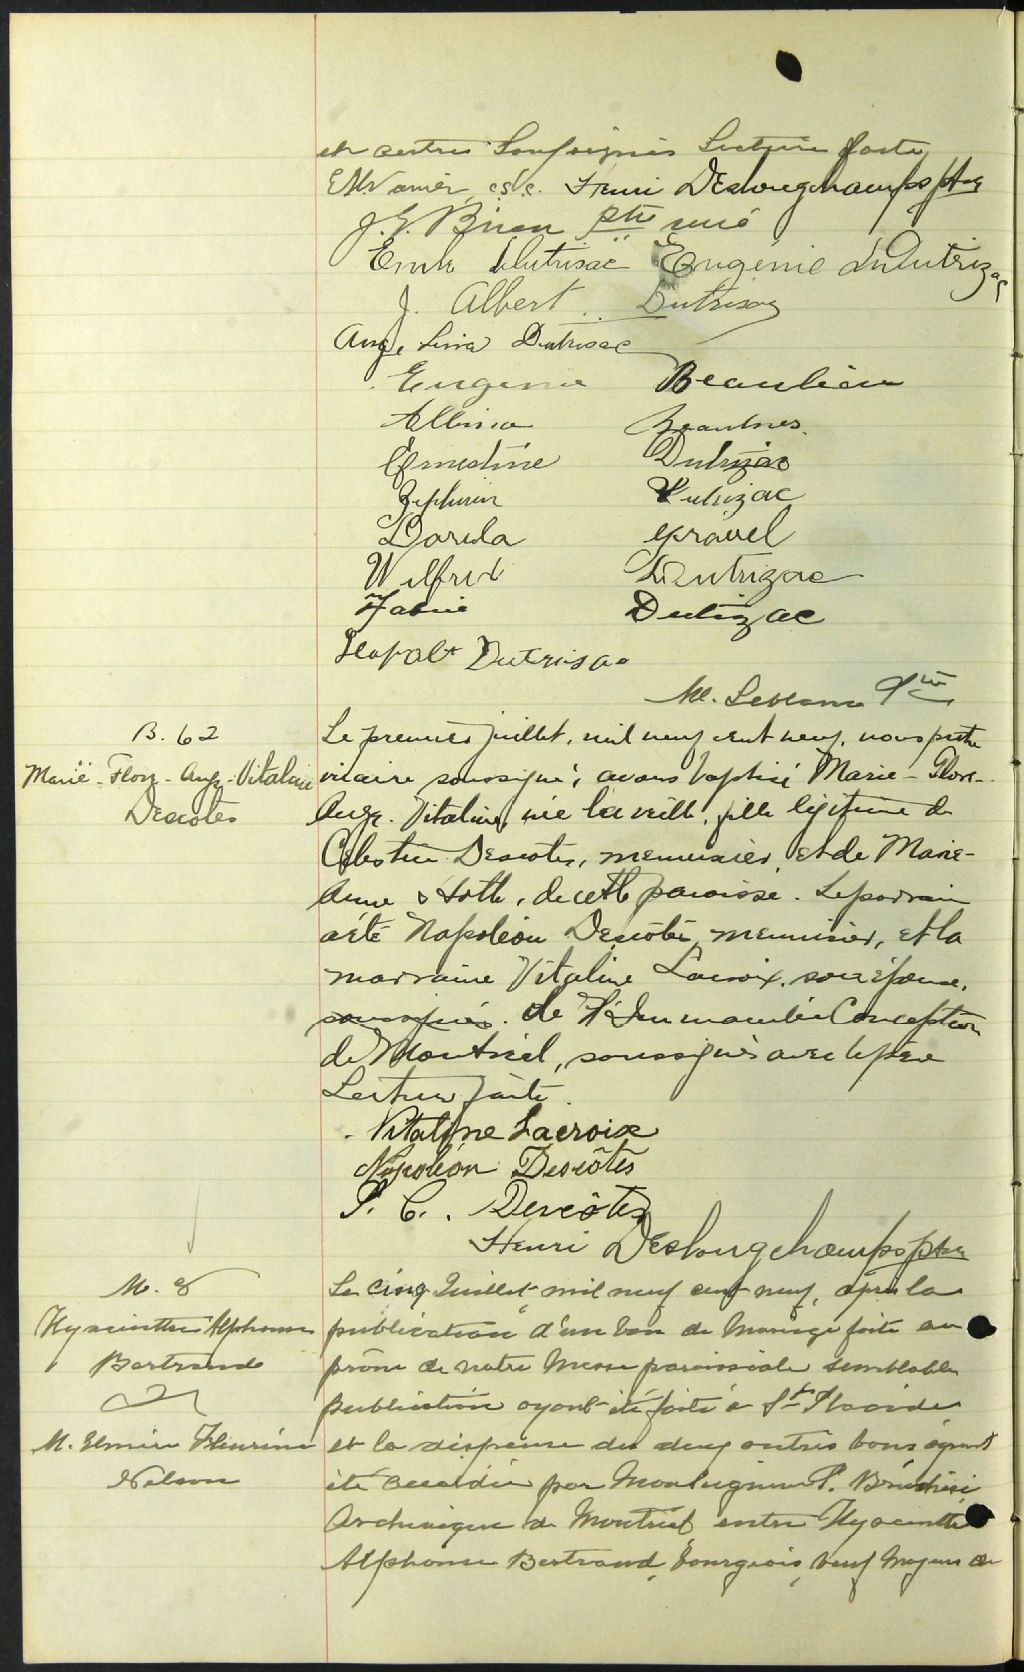 et autres soussignés Lecture faite
c.s.c. Henri Deslongchamps ptre
J. E. Brien ptre curé
Emile Dutrisac Eugénie Dutrizac
J. Albert Dutrisac
Angelina Dutrisac
Eugenie Beaulieu
Albina
Ernestine Dutrizac
Zephirin Dutrizac
Dorila Gravel
Wilfrid Dutrizac
Dutrizac
Dutrisac
M. Leblanc Ptre
B. 62
Marie-Flore-Ange-Vitaline
Descotes
Le premier juillet, mil neuf cent neuf, nous prêtre
vicaire soussigné, avons baptisé Marie-Flore-
Ange-Vitaline, née la veille, fille légitime de
Célestin Descotes, menuisier, et de Marie-
Anne, de cette paroisse. Le parrain
a été Napoléon Descôtes, menuisier, et la
marraine Vitaline Lacroix, son épouse,
soussignés. de l'Immaculée Conception
de Montréal, soussignés avec le père
Lecture faite.
Vitaline Lacroix
Napoléon Descôtes
P. C. Descôtes
Henri Deslongchamps ptre
M. 8
Hyacinthe Alphonse
Bertrand
&
M. Nelson
Le cinq Juillet mil neuf cent neuf, après la
publication d'un ban de mariage faite au
prône de notre Messe paroissiale semblable
publication ayant été faite à St Placide
et la dispense des deux autres bans ayant
été accordée par Monseigneur P. Bruchési
Archevêque de Montréal, entre Hyacinthe
Alphonse Bertrand, bourgeois, veuf majeur de